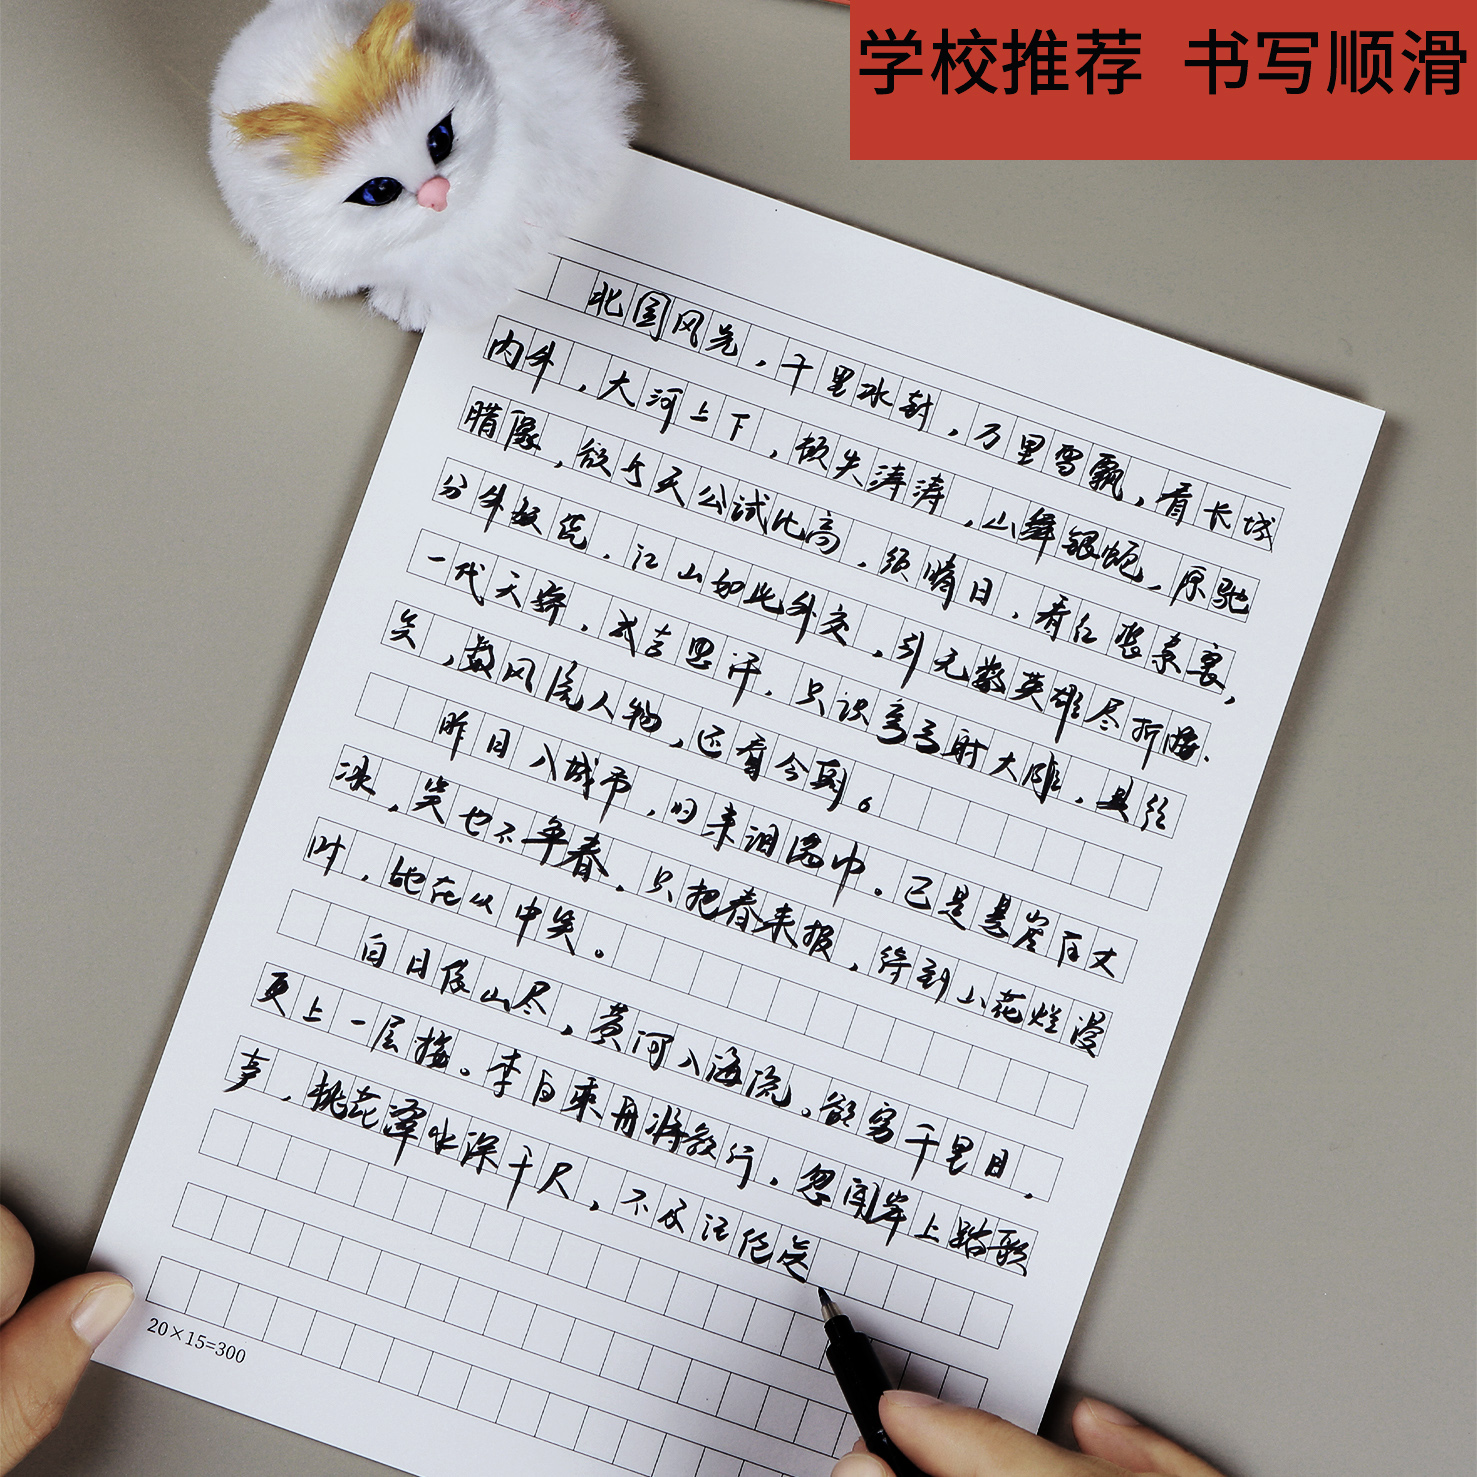 学校推荐 书写顺滑
北国风光，千里冰封，万里雪飘，看长城
内外，大河上下，顿失涛涛，山舞银蛇，原驰
腊像，欲与天公试比高，须晴日，看红装素裹，
分外妖娆，江山如此外交，引无数英雄尽折腰.
一代天骄，成吉思汗，只识弯弓射大雕，具往
矣，数风流人物，还看今朝。
昨日入城市，归来泪满巾。已是悬崖百丈
冰，笑也不争春，只把春来报，待到山花烂漫
时，她在丛中笑。
白日依山尽，黄河入海流。欲穷千里目，
更上一层楼。李白乘舟将欲行，忽闻岸上踏歌
声，桃花潭水深千尺，不及汪伦送
20×15=300